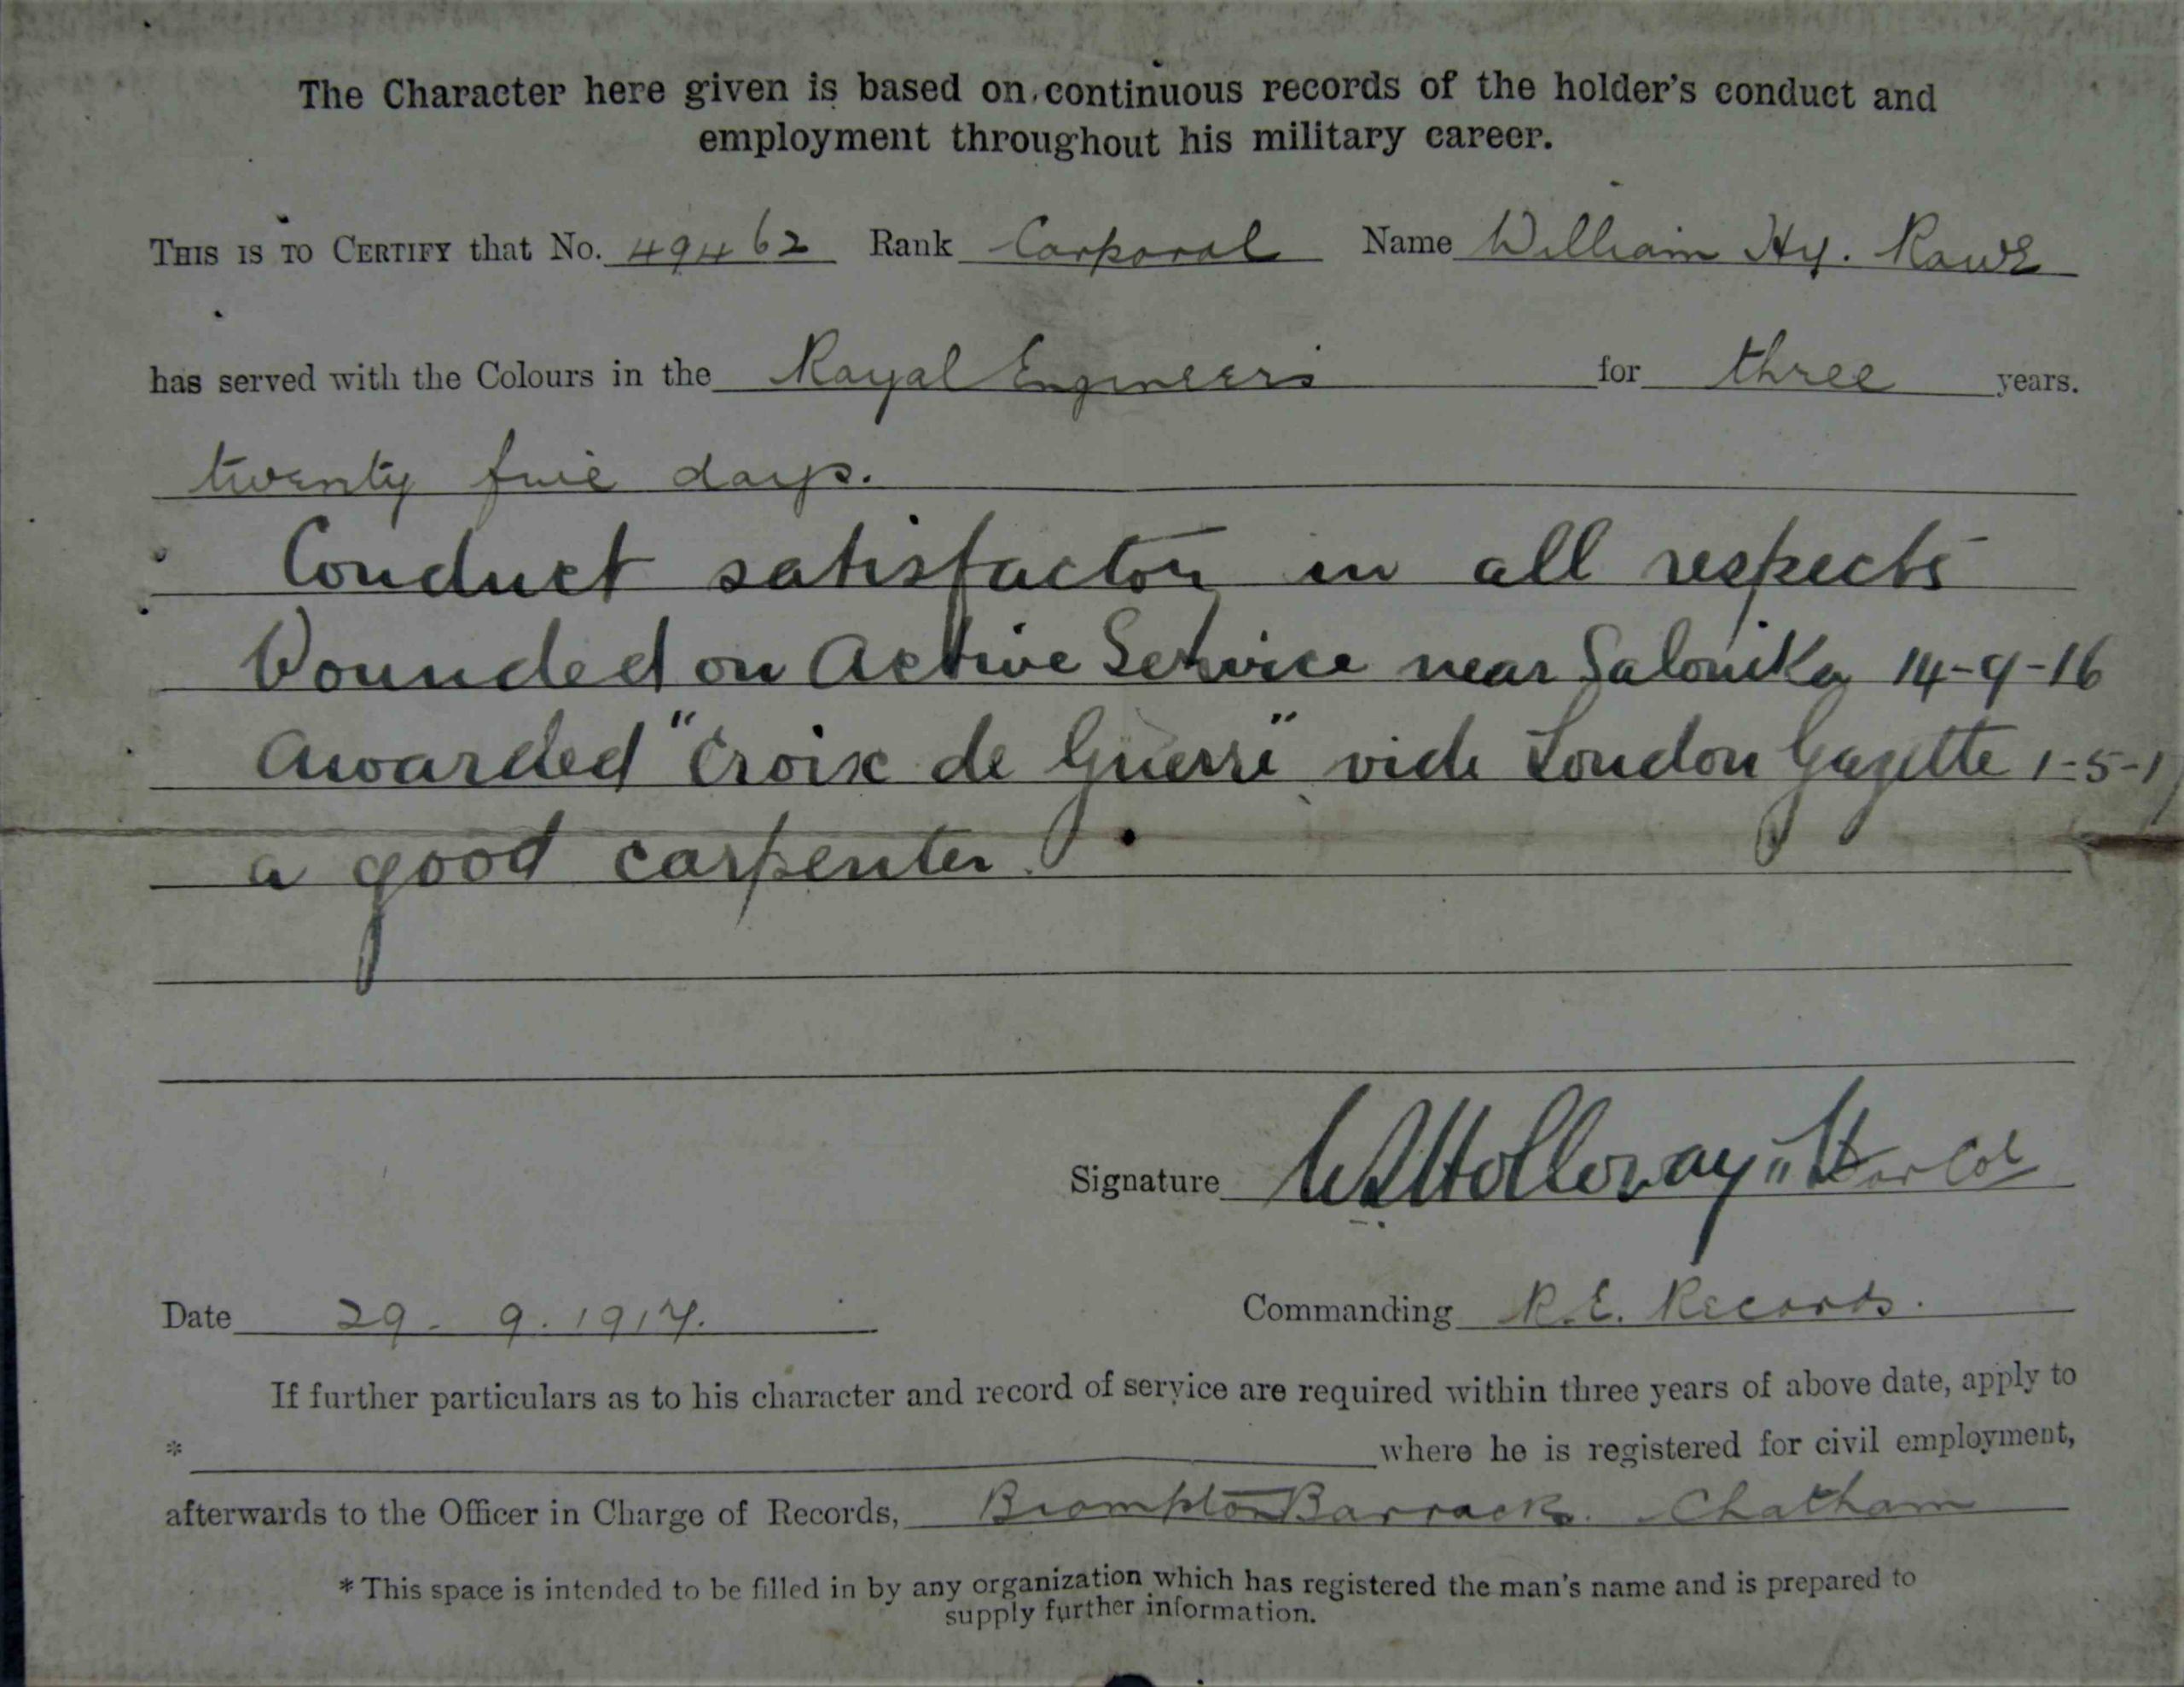 The Character here given is based on continuous records of the holder's conduct and
employment throughout his military career.
THIS IS TO CERTIFY that No. 49462 Rank Corporal Name William Hy. Rawe
has served with the Colours in the Royal Engineers for three years.
twenty five days.
Conduct satisfactory in all respects
Wounded on Active Service near Salonika 14-9-16
Awarded "Croix de Guerre" vide London Gazette 1-5-17
a good carpenter
Signature Holloway
Date 29. 9. 1917. Commanding R.E. Records.
If further particulars as to his character and record of service are required within three years of above date, apply to
* where he is registered for civil employment,
afterwards to the Officer in Charge of Records, Brompton Barracks. Chatham
* This space is intended to be filled in by any organization which has registered the man's name and is prepared to
supply further information.